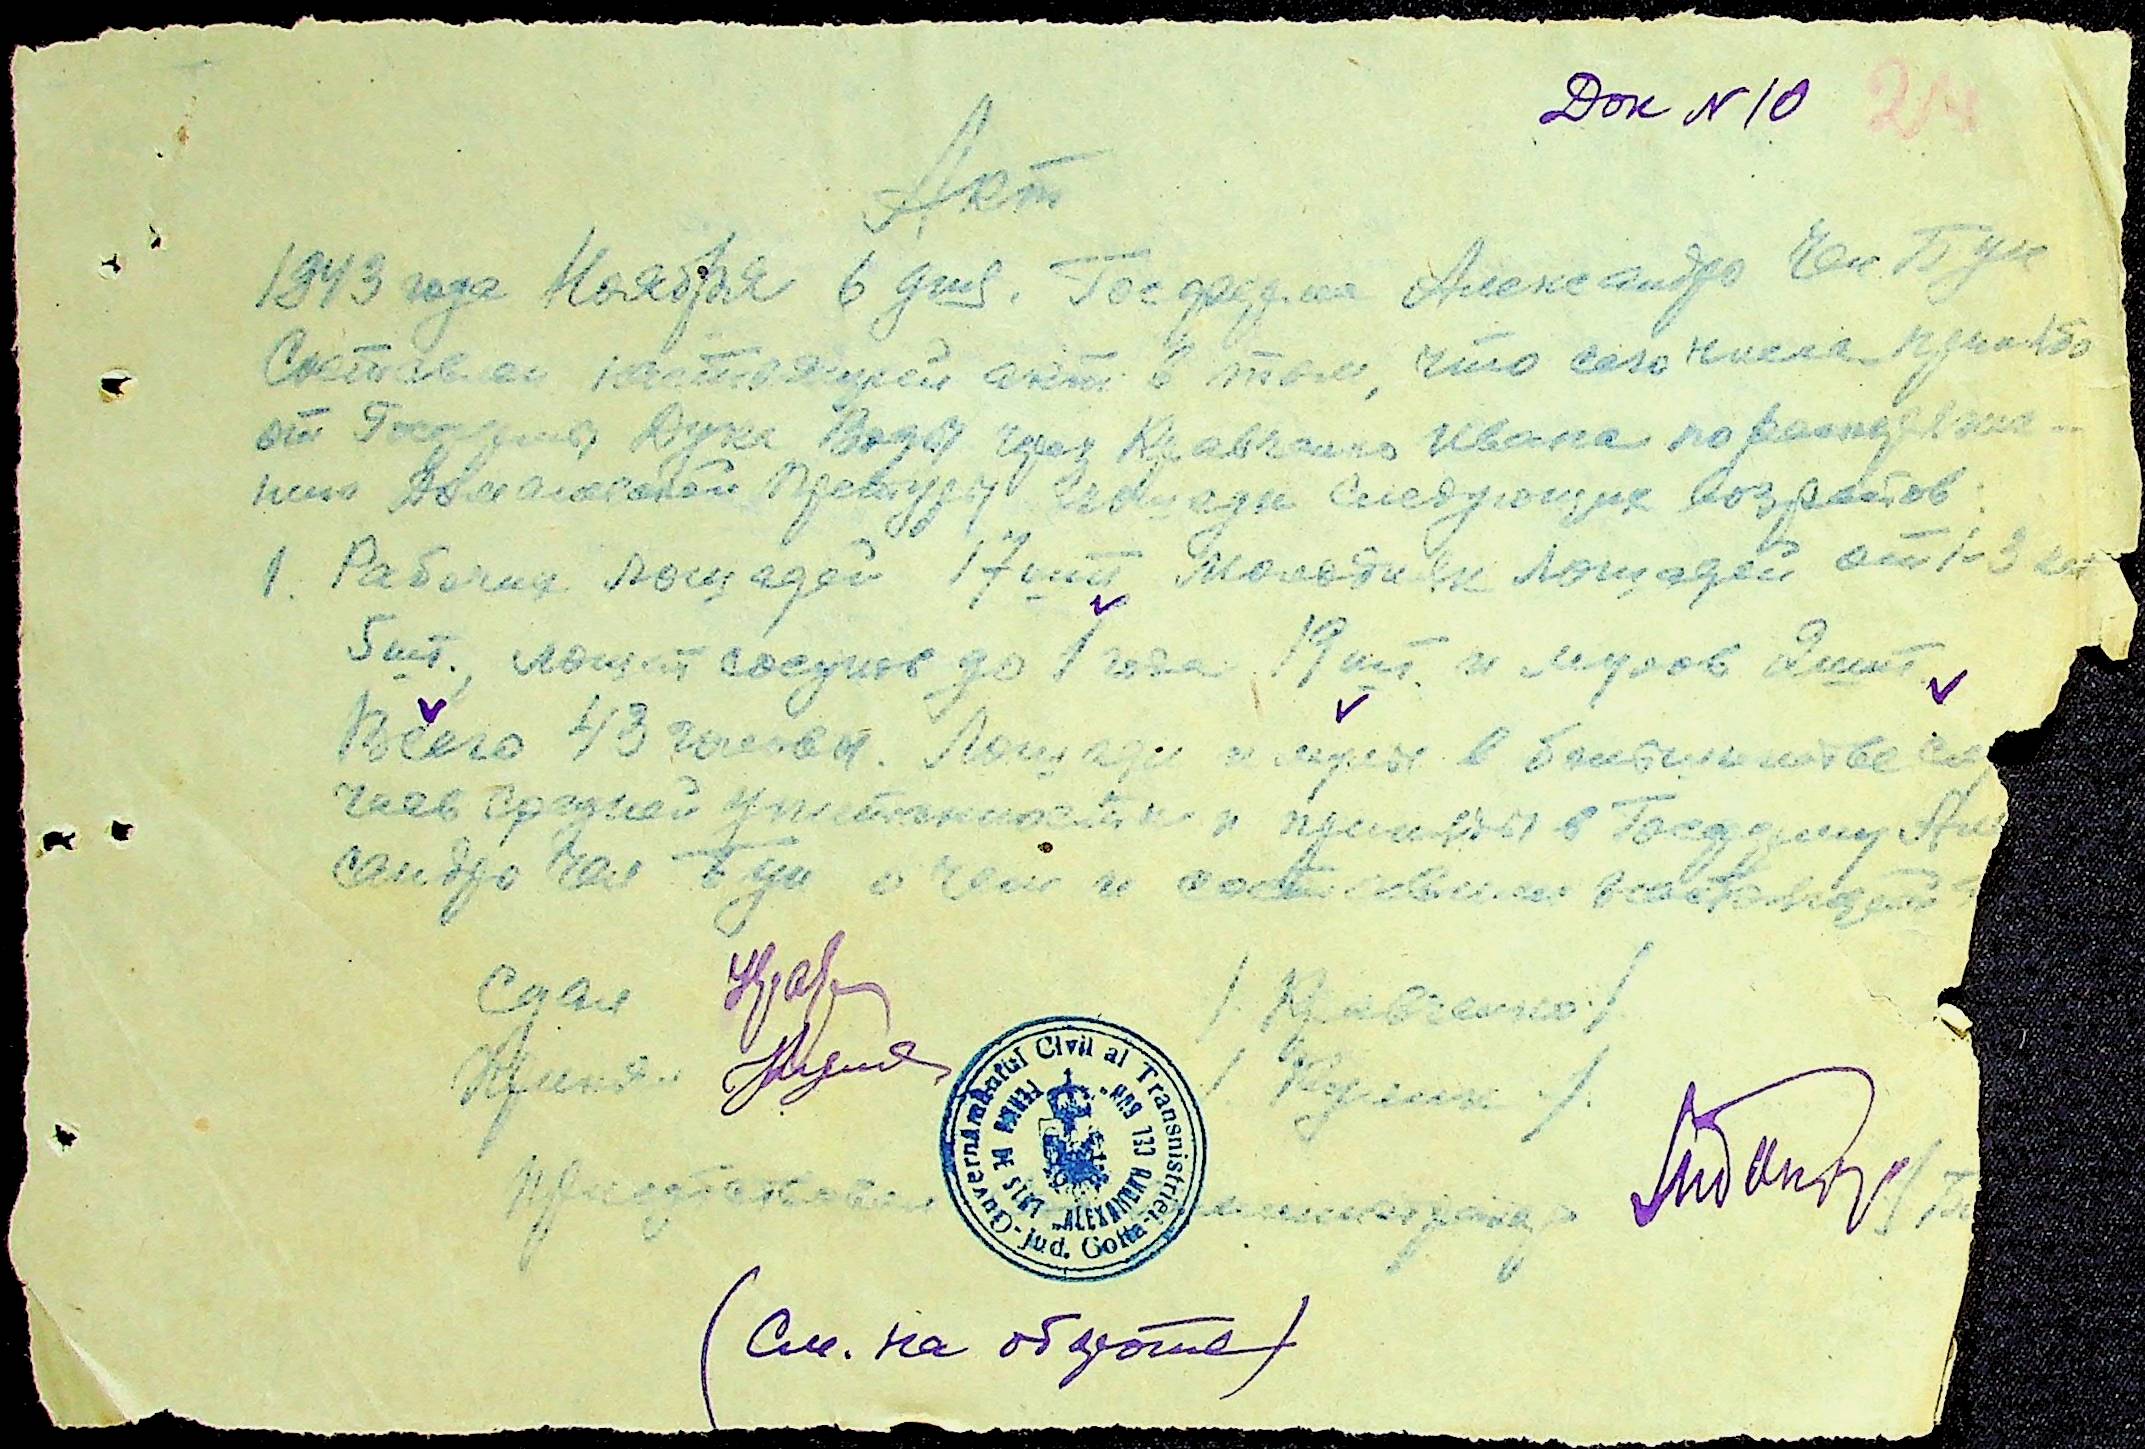 Док N 10 24
Акт
1943 года Ноября 6 дня. Госферма Александро Чел Бун
Составлен настоящий акт в том, что сего числа принято
от Госфермы Дука Водэ через Кравченко Ивана по распоряже-
нию Доманевской Претуры лошади следующих возрастов:
1. Рабочих лошадей 17 шт Молодняк лошадей от 1-3 лет
5 шт., лошат сосунов до 1 года 19 шт. и мулов 2 шт.
Всего 43 головы. Лошади и мулы в большинстве слу
чаев средней упитанности и приняты в Госферму Але
сандро Чел Бун о чем и составлен настоящий
Сдал /Кравченко/.
Принял /Кулик/.
Guvernământul Civil al Transnistriei - jud. Golta
FERMA DE STAT „ALEXANDRU CEL BUN"
(См. на обороте)